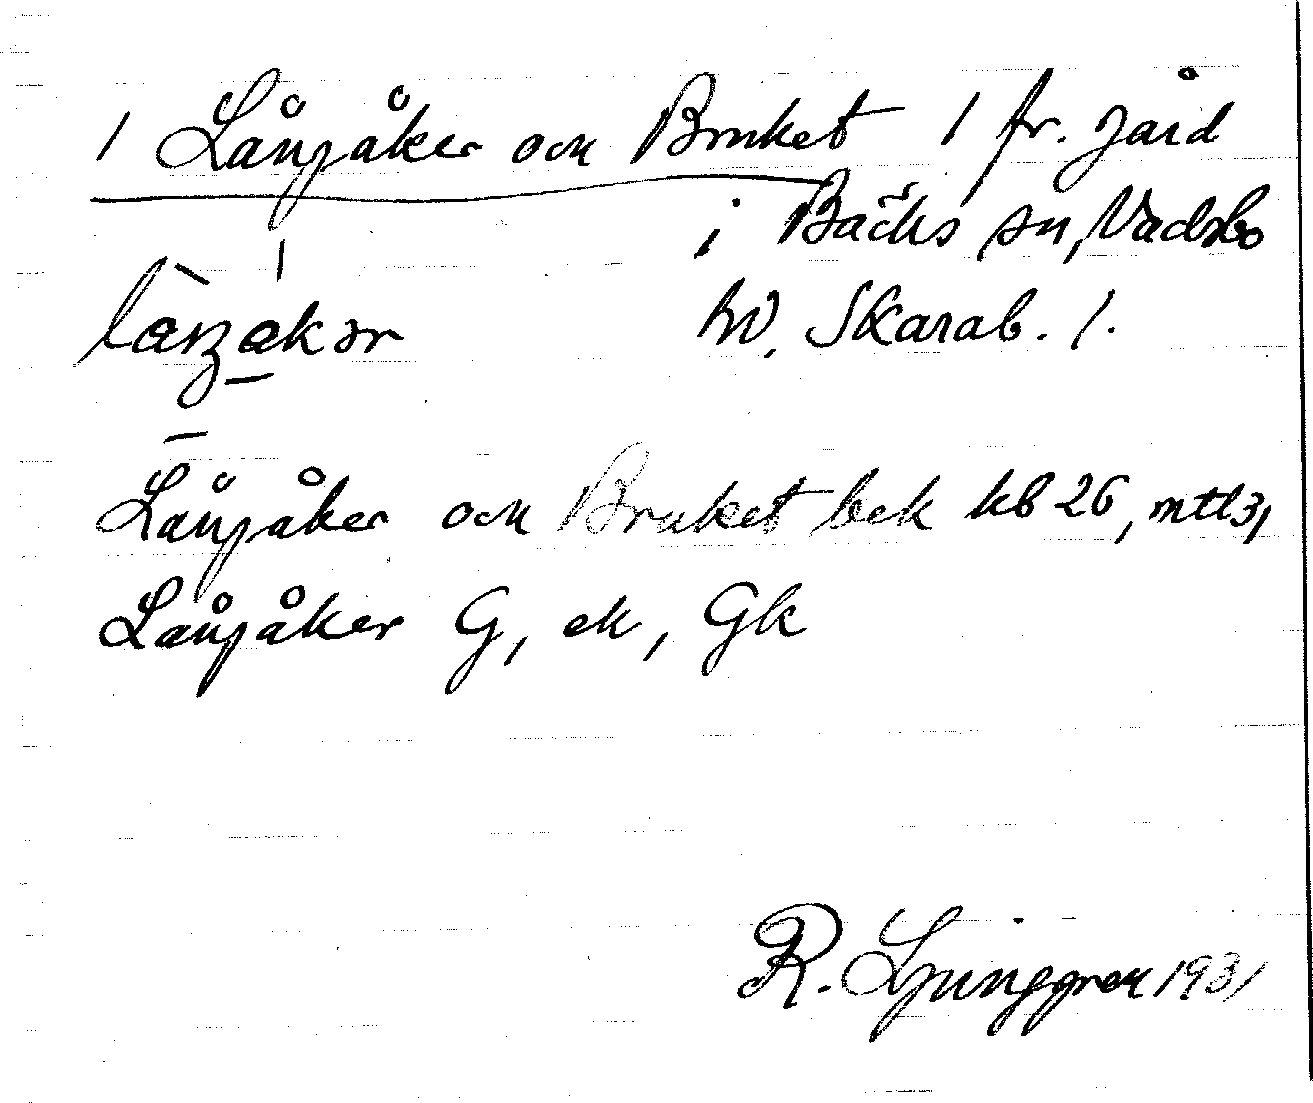 1 Långåker och Bruket 1 fr. gård
i Bäcks sn, Vadsbo
hd, Skarab. l.
Långåker och Bruket bek kb 26, mtl 3,
Långåker G, ek, Gk
R. Ljunggren 1931